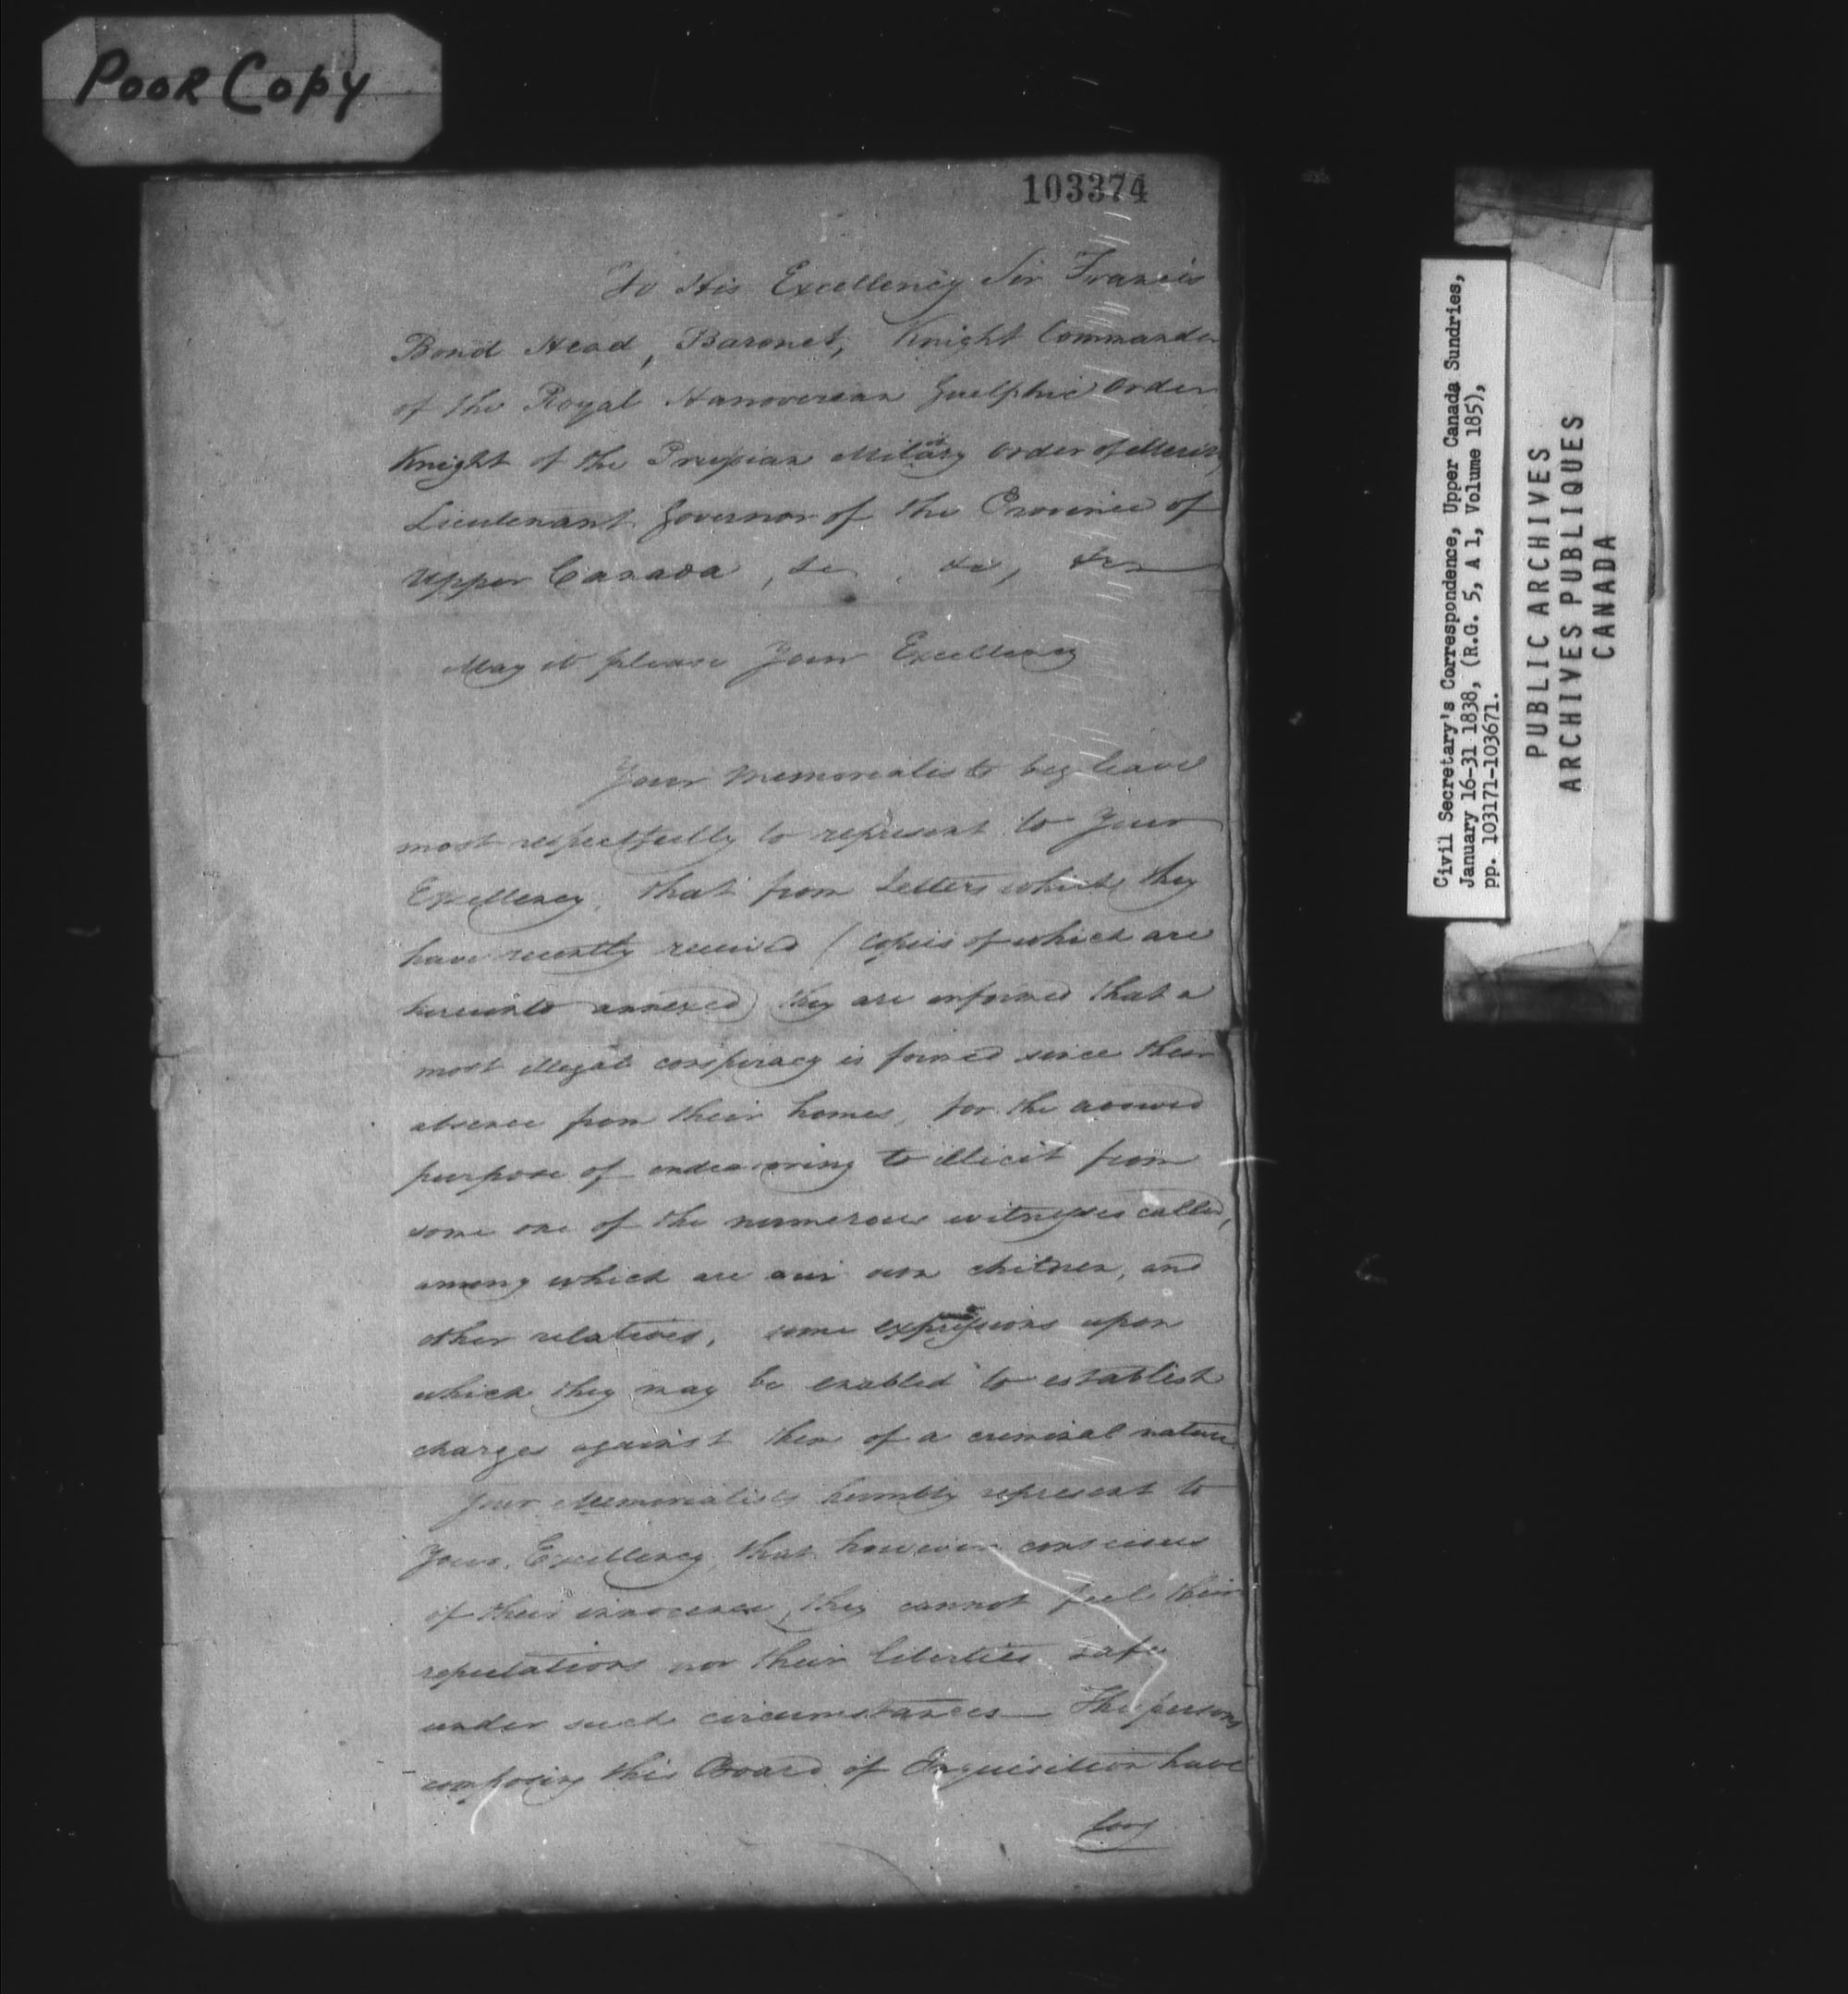 POOR COPY
103374
To His Excellency Sir Francis
Bond Head, Baronet, Knight Commander
of the Royal Hanoverian Guelphic Order
Knight of the Prussian Military Order of Merit,
Lieutenant Governor of the Province of
Upper Canada, &c, &c, &c
May it please Your Excellency
Your Memorialists beg leave
most respectfully to represent to Your
Excellency, that from Letters which they
have recently received (copies of which are
hereunto annexed) they are informed that a
most illegal conspiracy is formed since their
absence from their homes, for the avowed
purpose of endeavoring to illicit from
some one of the numerous witnesses called,
among which are our own children, and
other relatives, some expressions upon
which they may be enabled to establish
charges against them of a criminal nature
Your Memorialists humbly represent to
Your Excellency, that however conscious
of their innocence, they cannot feel their
reputations nor their liberties safe
under such circumstances — The persons
composing this Board of Inquisition have
Civil Secretary's Correspondence, Upper Canada Sundries,
January 16-31 1838, (R.G. 5, A 1, Volume 185),
pp. 103171-103671.
PUBLIC ARCHIVES
ARCHIVES PUBLIQUES
CANADA